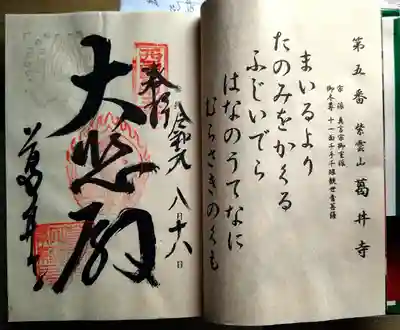 第五番 紫雲山 葛井寺
宗派 真言宗御室派
御本尊 十一面千手千眼観世音菩薩
まいるより
たのみをかくる
ふじいでら
はなのうてなに
むらさきのくも
奉拝
八月十八日
大悲殿
葛井寺